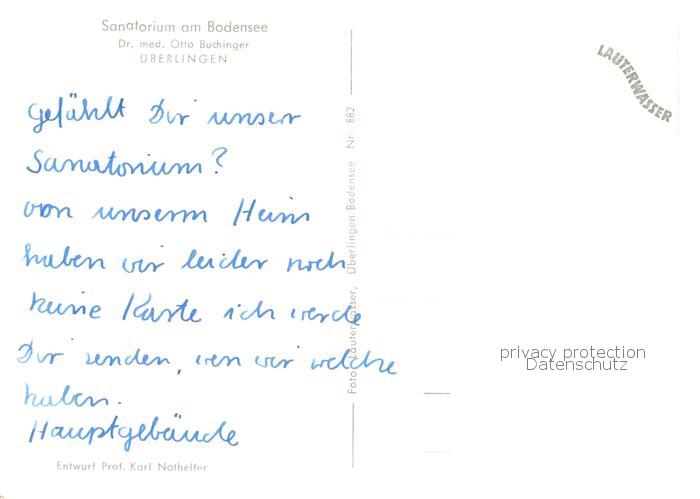 Sanatorium am Bodensee
Dr. med. Otto Buchinger
ÜBERLINGEN
Gefählt Dir unser
Sanatorium?
von unserm Heim
haben wir leider noch
keine Karte ich werde
Dir senden, wen wir welche
haben.
Hauptgebäude
Entwurf Prof. Karl Nothelfer
Foto: Lauterwasser, Überlingen-Bodensee Nr. 882
LAUTERWASSER
privacy protection
Datenschutz